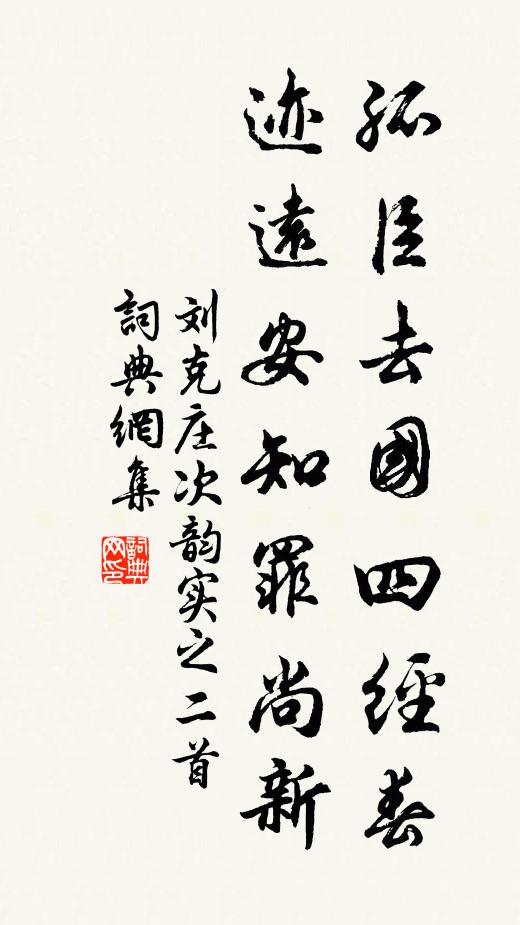 孤臣去國四經春
迹遠安知罪尚新
刘克庄次韵实之二首
詞典網集
詞典網印